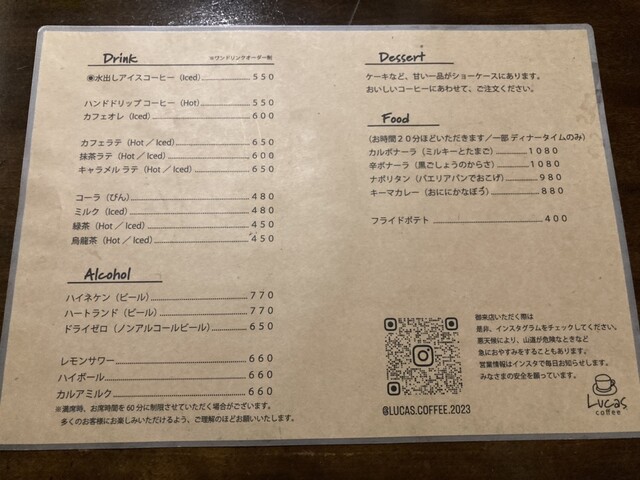 Drink
※ワンドリンクオーダー制
◉水出しアイスコーヒー（Iced） 550
ハンドドリップコーヒー（Hot） 550
カフェオレ（Iced） 600
カフェラテ（Hot／Iced） 650
抹茶ラテ（Hot／Iced） 600
キャラメルラテ（Hot／Iced） 650
コーラ（びん） 480
ミルク（Iced） 480
緑茶（Hot／Iced） 450
烏龍茶（Hot／Iced） 450
Alcohol
ハイネケン（ビール） 770
ハートランド（ビール） 770
ドライゼロ（ノンアルコールビール） 650
レモンサワー 660
ハイボール 660
カルアミルク 660
※満席時、お席時間を60分に制限させていただく場合がございます。
多くのお客様にお楽しみいただけるよう、ご理解のほどお願いいたします。
Dessert
ケーキなど、甘い一品がショーケースにあります。
おいしいコーヒーにあわせて、ご注文ください。
Food
（お時間20分ほどいただきます／一部 ディナータイムのみ）
カルボナーラ（ミルキーとたまご） 1080
辛ボナーラ（黒ごしょうのからさ） 1080
ナポリタン（パエリアパンでおこげ） 980
キーマカレー（おににかなぼう） 880
フライドポテト 400
御来店いただく際は
是非、インスタグラムをチェックしてください。
悪天候により、山道が危険なときなど
急におやすみをすることもあります。
営業情報はインスタで毎日お知らせします。
みなさまの安全を願っています。
@LUCAS.COFFEE.2023
Lucas
coffee